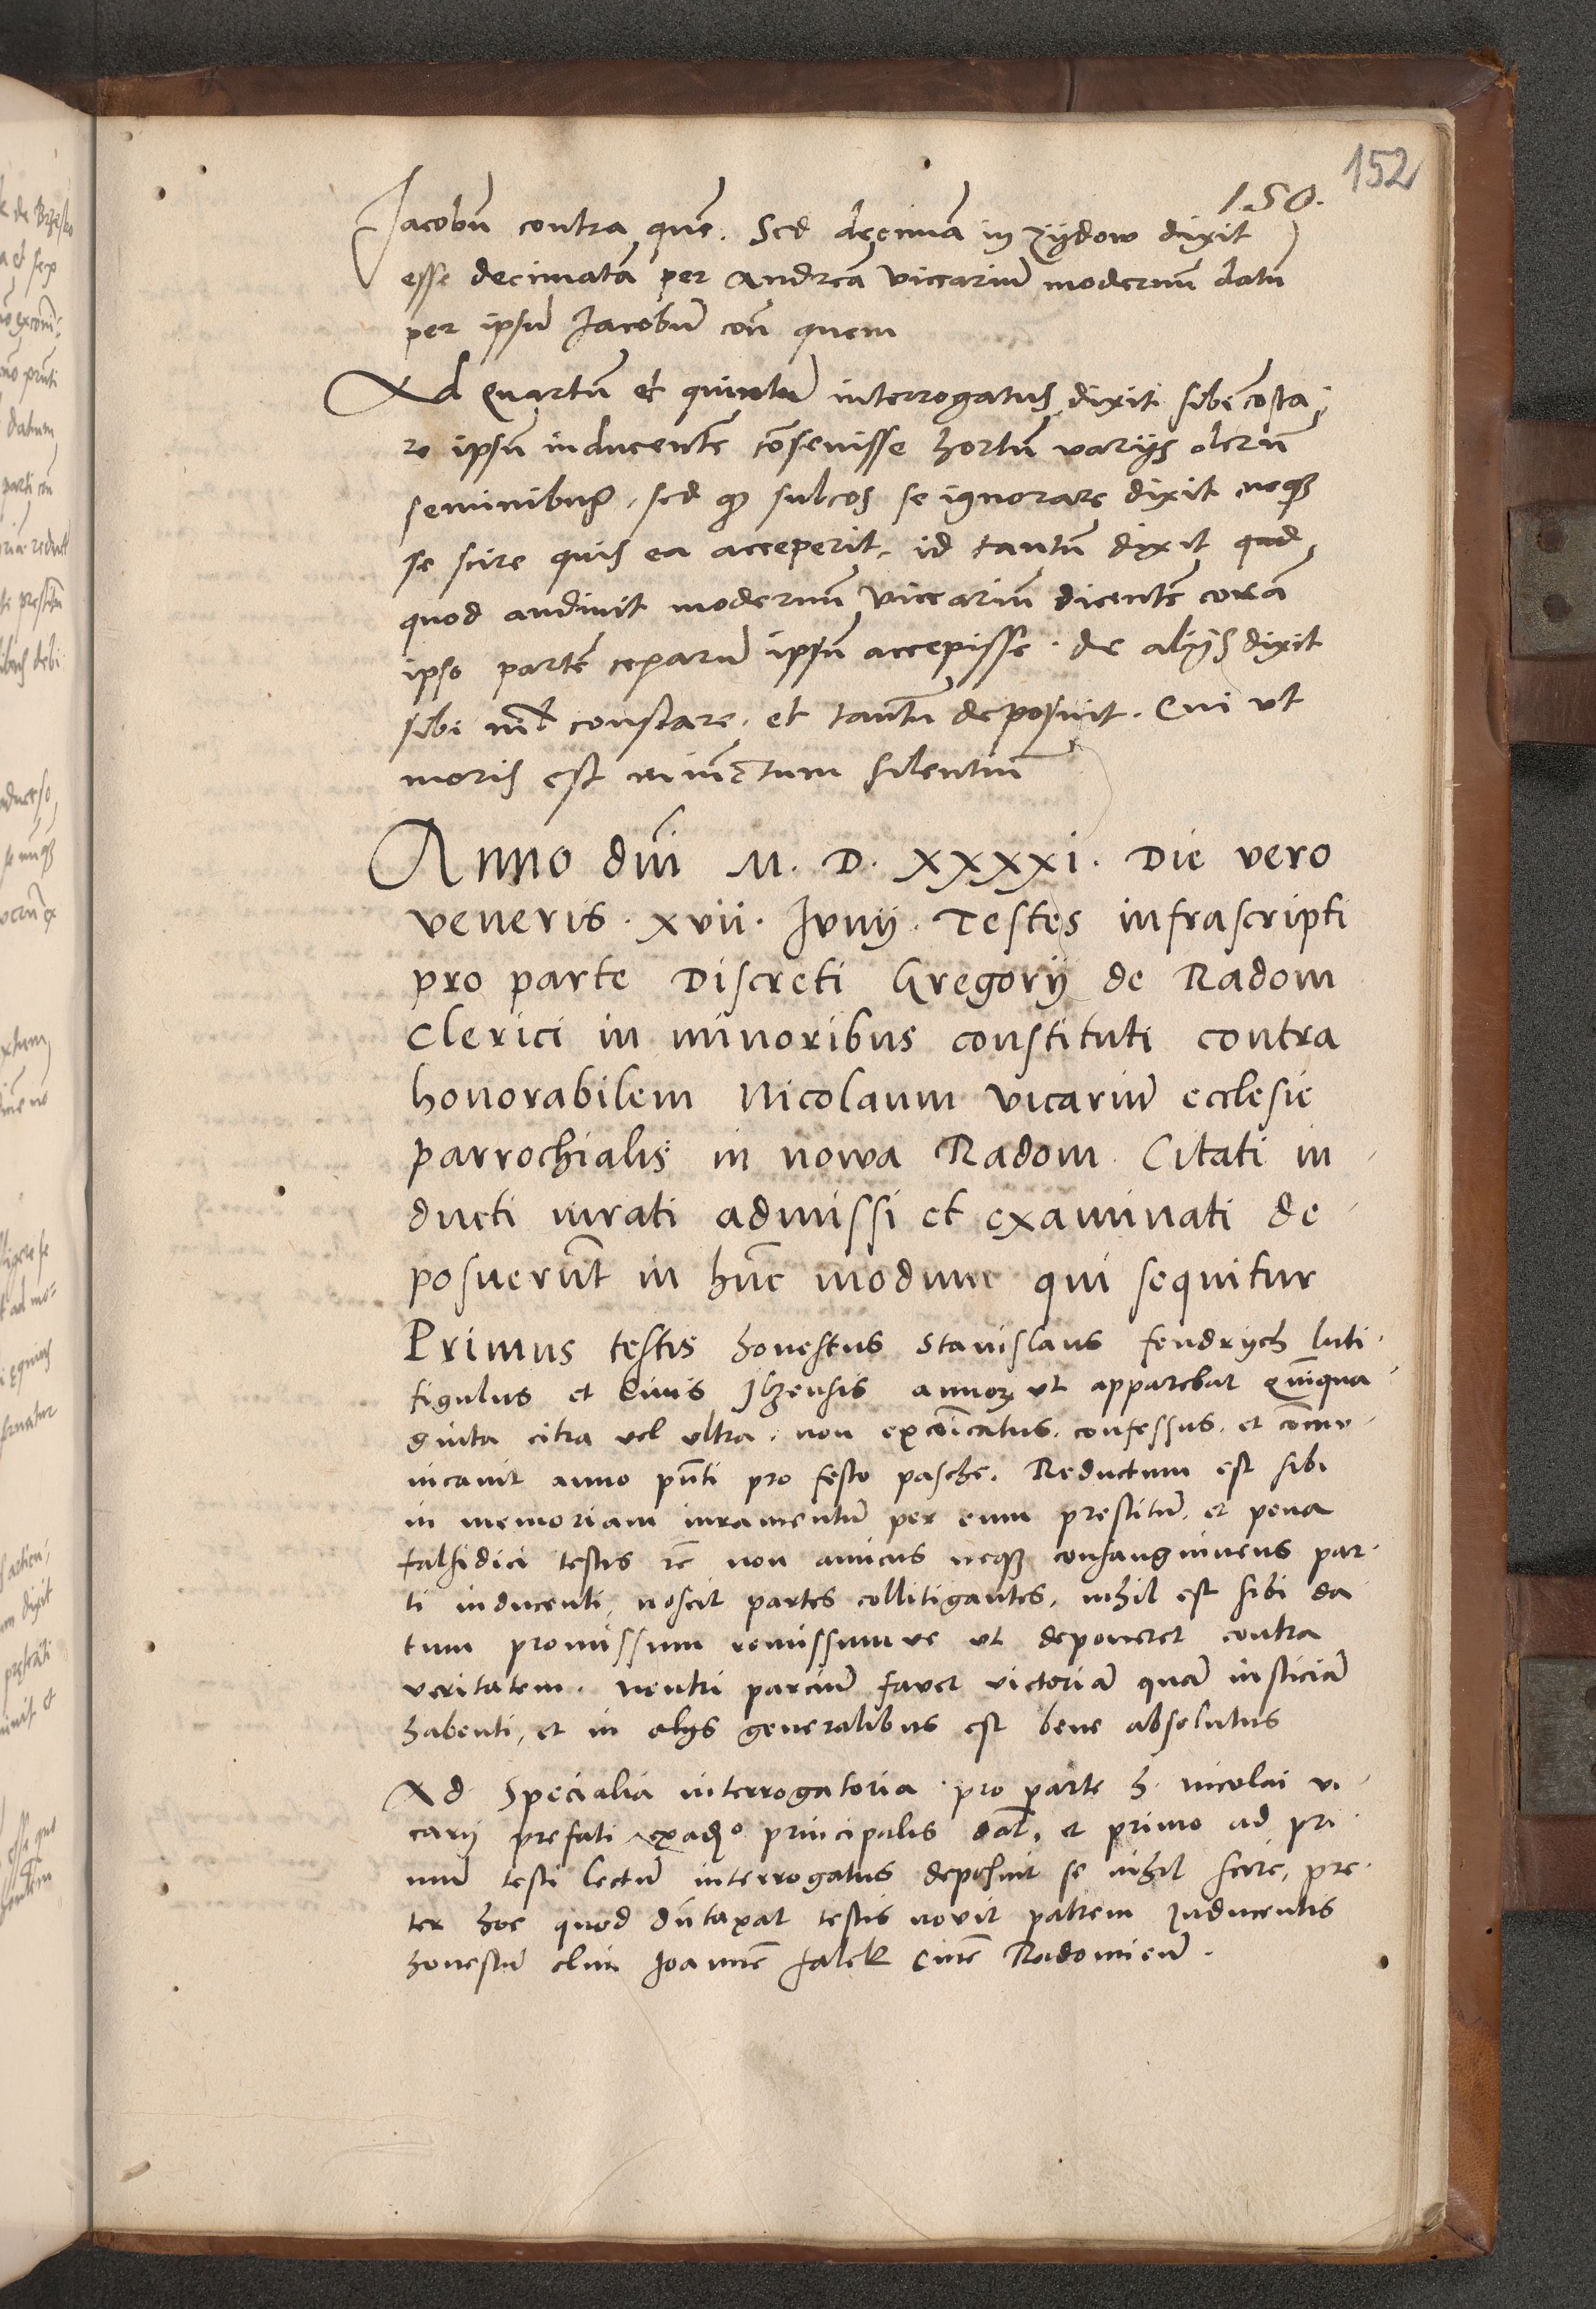 152
150.
Jacobũ contra quẽ. Sed decimã in Zydow dixit
esse decimatã per Andreã viccariũ modernũ datũ
per ipsũ Jacobũ coñ quem
Ad Quartũ et quintũ interrogatus dixit sibi cõsta
re ipsũ inducentẽ cõsevisse hortũ varijs olerũ
seminibus, sed sulcos se ignorare dixit neqꝫ
se scire quis ea acceperit, id tantũ dixit quod
quod audivit modernũ viccariũ dicentẽ corã
ipso partẽ ceparũ ipsũ accepisse. de alijs dixit
sibi nil constare, et tantũ deposuit. Cui ut
moris est iniũctum silentiũ
Anno dñi M. D. XXXXI. Die vero
veneris. xvii. Junij. Testes infrascripti
pro parte Discreti Gregorij de Radom
Clerici in minoribus constituti contra
honorabilem Nicolaum vicariũ ecclesie
parrochialis in nowa Radom. Citati in
ducti iurati admissi et examinati de
posuerũt in hũc modum qui sequitur
Primus testis honestus Stanislaus fendrych luti
figulus et Civis Ilzensis annoꝝ ut apparebat Quinqua
ginta citra vel ultra. non excõicatus. confessus. et cõmu
nicavit anno pñti pro festo pasche. Reductum est sibi
in memoriam iuramentũ per eum prestitũ, et pena
falsidici testis rẽ non amicus neqꝫ consanguineus par
ti inducenti, noscit partes collitigantes, nihil est sibi da
tum promissum remissumve ut deponeret contra
veritatem. neutri parciũ favet victoriã quã iusticiã
habenti, et in alijs generalibus est bene absolutus
Ad Specialia interrogatoria pro parte h. nicolai vi
carij prefati principalis dat, et primo ad pri
mũ testi lectũ interrogatus deposuit se nihil scire, pre
ter hoc quod dũtaxat testis novit patrem Inducentis
honestũ olim Joannẽ falek Civẽ Radomieñ.